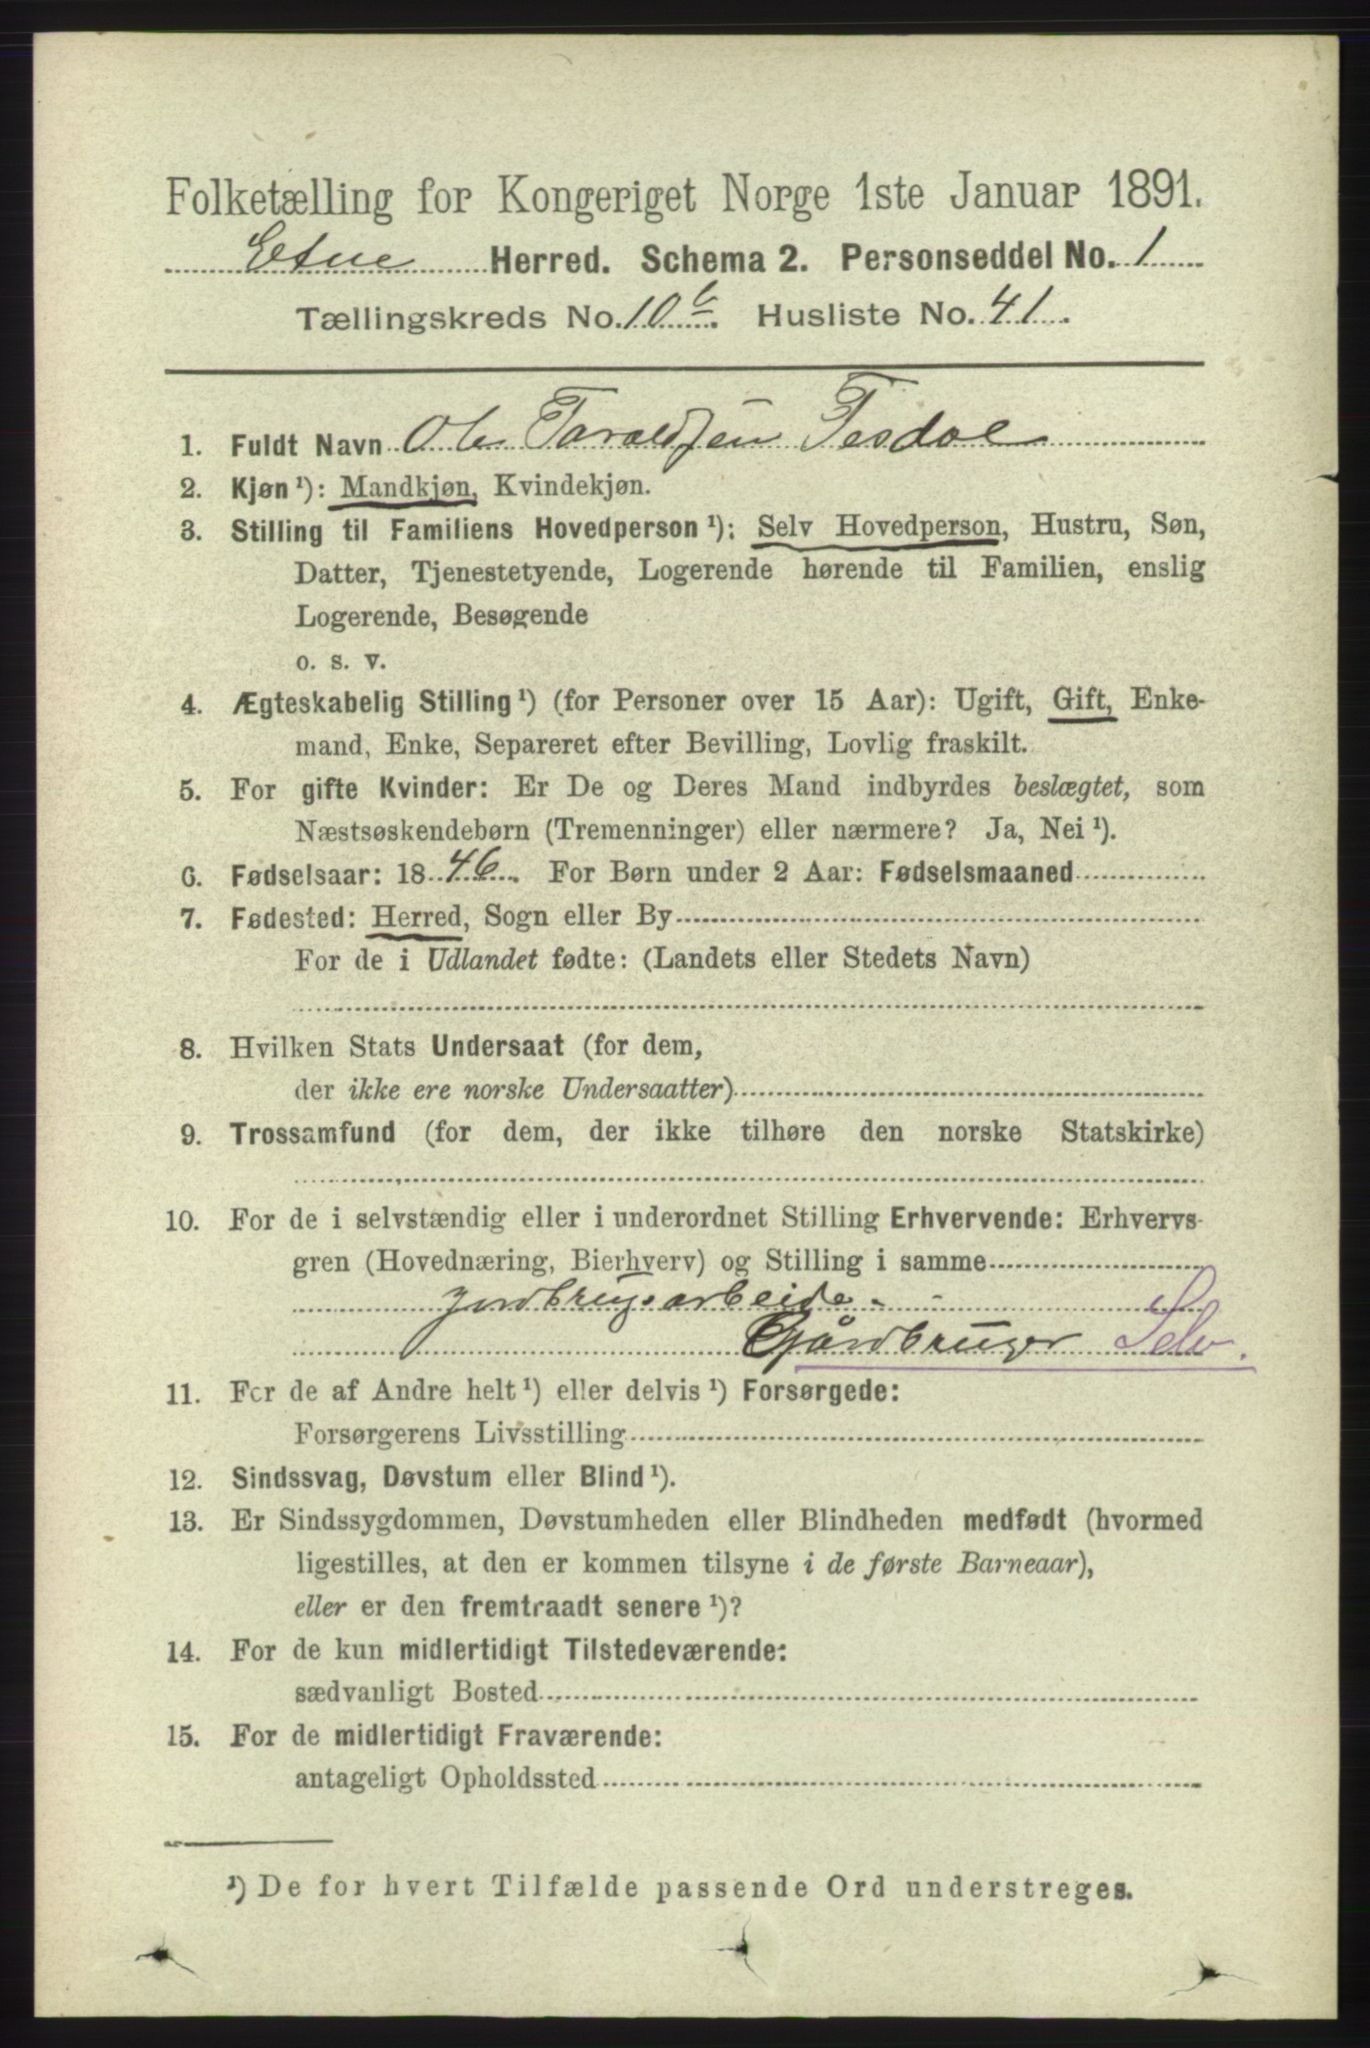 Folketælling for Kongeriget Norge 1ste Januar 1891.
Etne Herred. Schema 2. Personseddel No. 1
Tællingskreds No. 10 b. Husliste No. 41.
1. Fuldt Navn Ole Taraldsen Tesdal
2. Kjøn ¹): Mandkjøn, Kvindekjøn.
3. Stilling til Familiens Hovedperson ¹): Selv Hovedperson, Hustru, Søn,
Datter, Tjenestetyende, Logerende hørende til Familien, enslig
Logerende, Besøgende
o. s. v.
4. Ægteskabelig Stilling ¹) (for Personer over 15 Aar): Ugift, Gift, Enke-
mand, Enke, Separeret efter Bevilling, Lovlig fraskilt.
5. For gifte Kvinder: Er De og Deres Mand indbyrdes beslægtet, som
Næstsøskendebørn (Tremenninger) eller nærmere? Ja, Nei ¹).
6. Fødselsaar: 1846. For Børn under 2 Aar: Fødselsmaaned
7. Fødested: Herred, Sogn eller By
For de i Udlandet fødte: (Landets eller Stedets Navn)
8. Hvilken Stats Undersaat (for dem,
der ikke ere norske Undersaatter)
9. Trossamfund (for dem, der ikke tilhøre den norske Statskirke)
10. For de i selvstændig eller i underordnet Stilling Erhvervende: Erhvervs-
gren (Hovednæring, Bierhverv) og Stilling i samme
Jordbrugsarbeide -
Gårdbruger Selv.
11. For de af Andre helt ¹) eller delvis ¹) Forsørgede:
Forsørgerens Livsstilling
12. Sindssvag, Døvstum eller Blind ¹).
13. Er Sindssygdommen, Døvstumheden eller Blindheden medfødt (hvormed
ligestilles, at den er kommen tilsyne i de første Barneaar),
eller er den fremtraadt senere ¹)?
14. For de kun midlertidigt Tilstedeværende:
sædvanligt Bosted
15. For de midlertidigt Fraværende:
antageligt Opholdssted
¹) De for hvert Tilfælde passende Ord understreges.